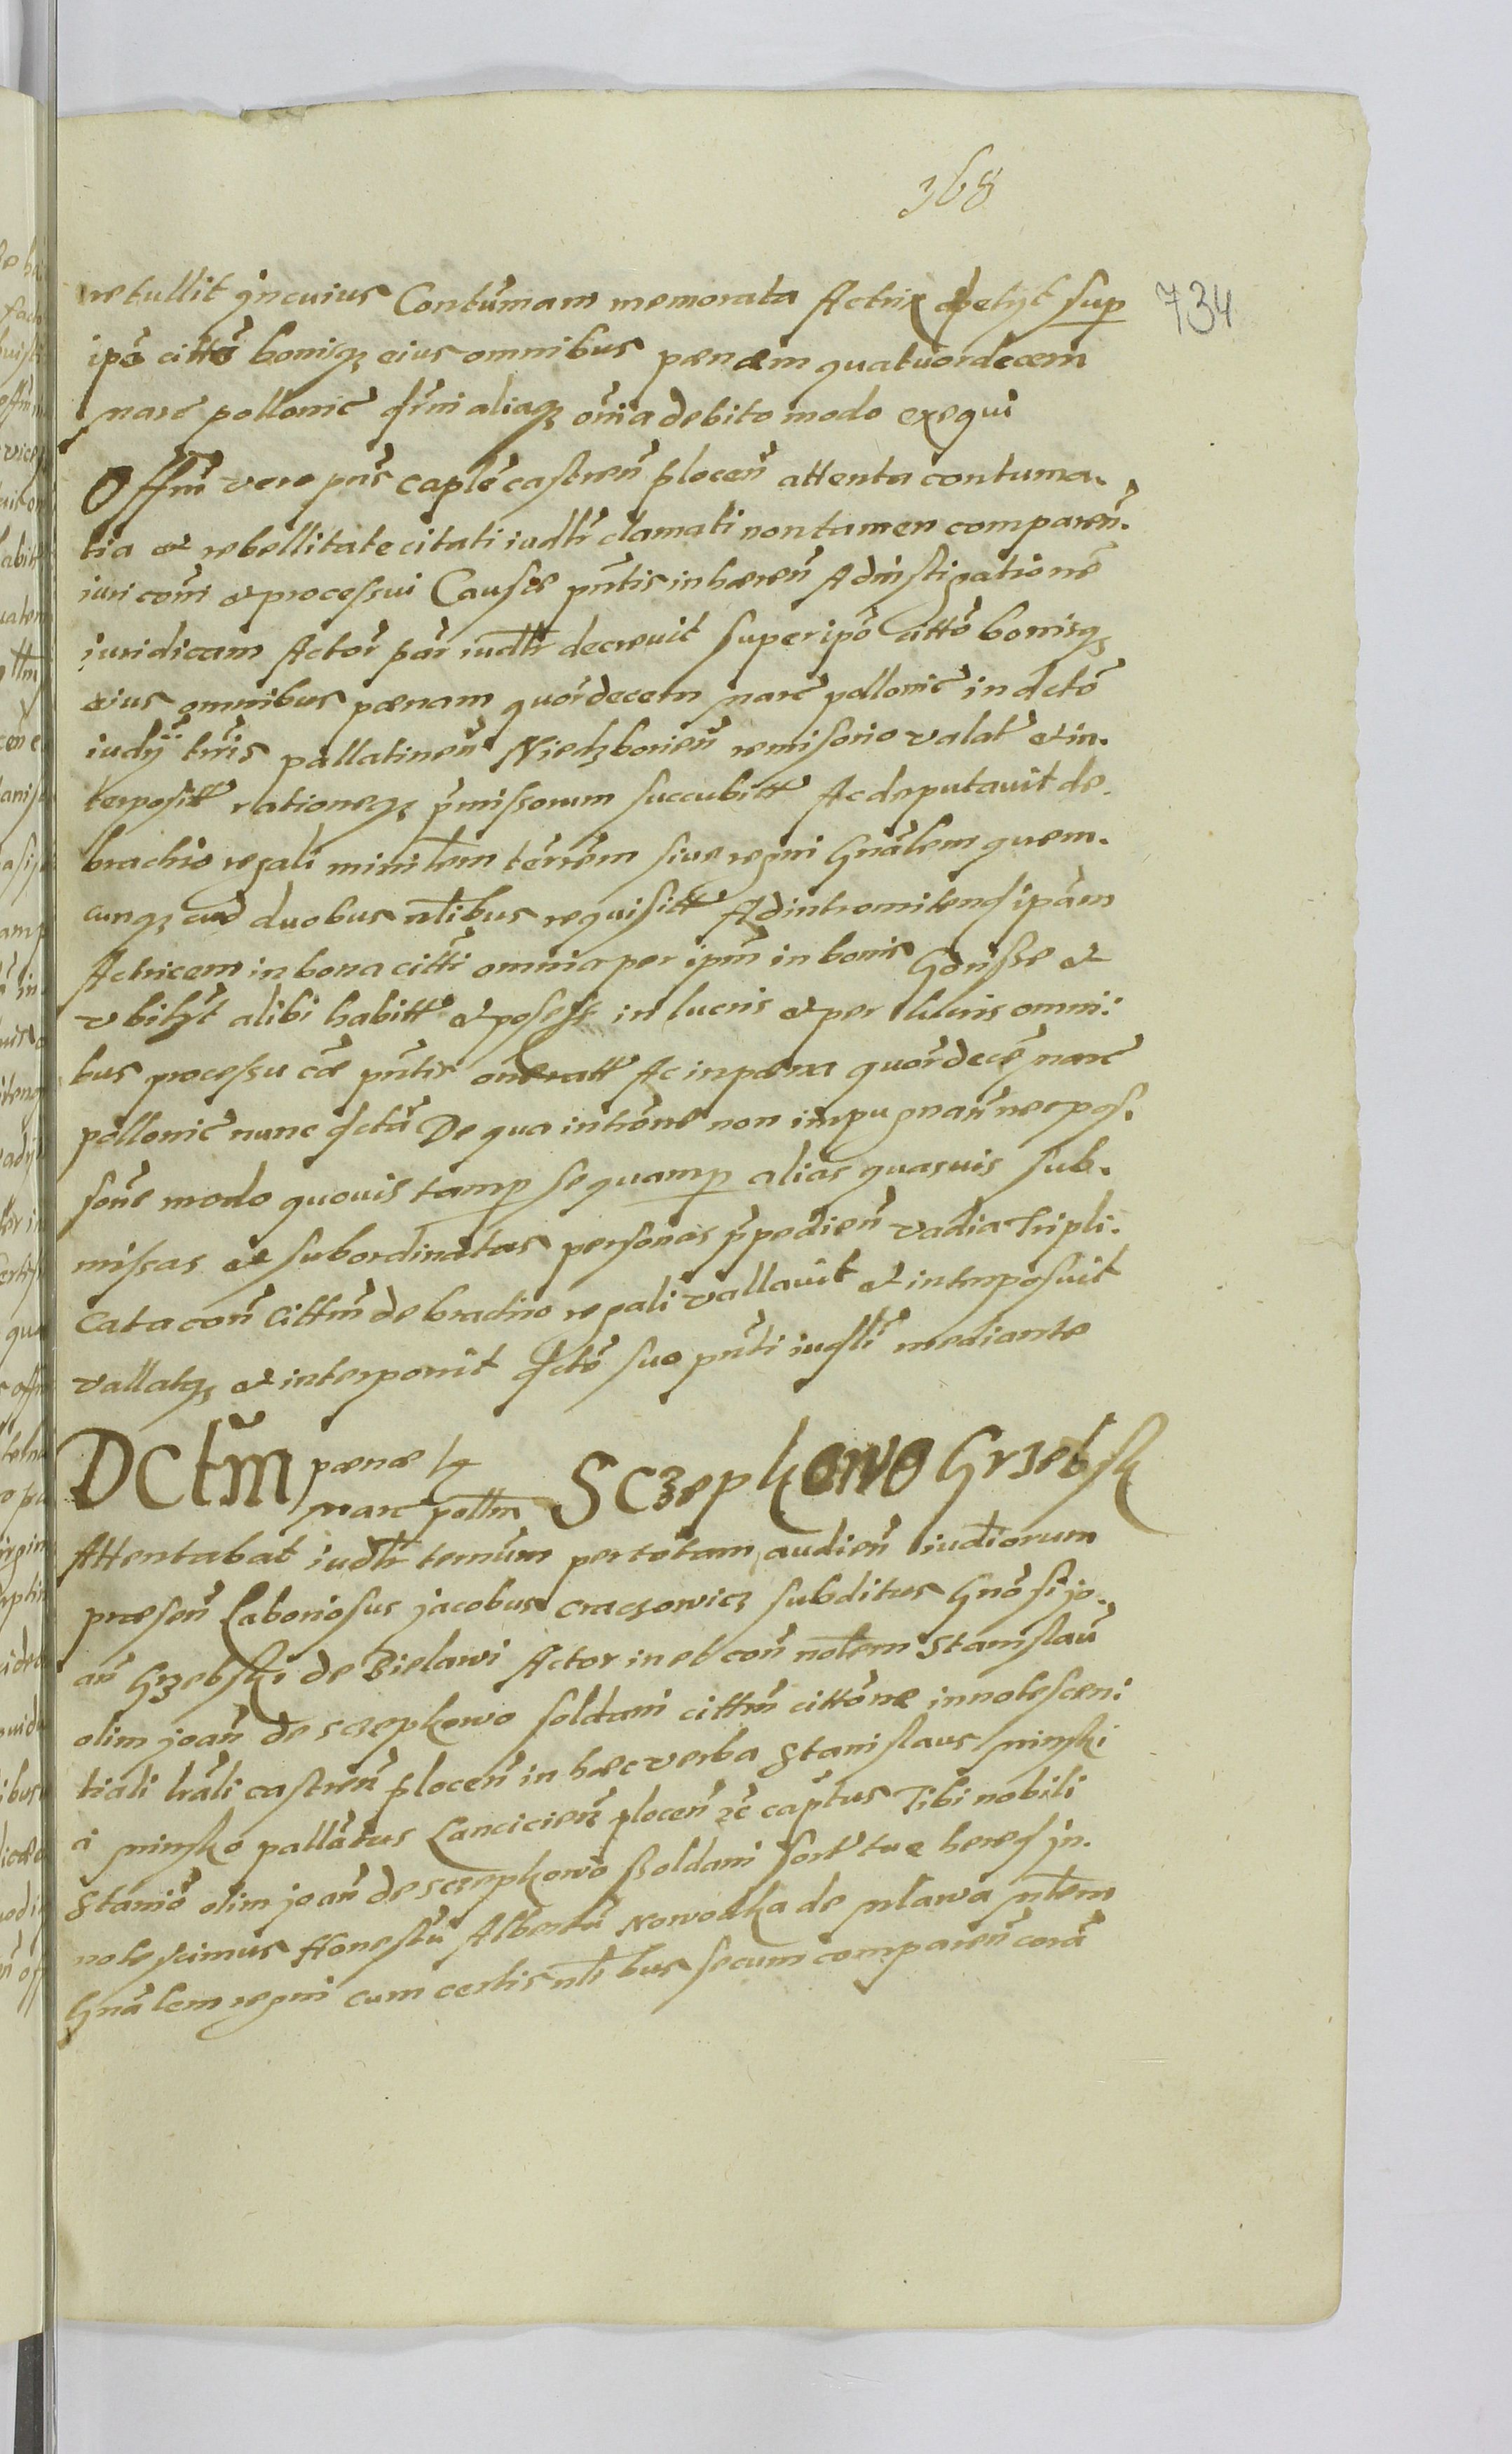 368
734
retullit jncuius Contumam memorata Actrix petijt sup
ipo citto bonisq; eius omnibus paenam quatuordecem
marc pollonic aliaq; omia debito modo exequi
Offm vero pns caple castren plocen attenta contuma.
tia et rebellitate citati iudlr clamati non tamen comparen.
iuri coni et processui Causae pntis inhaeren Ad instigatione
iuridicam Actor par iudlr decrevit super ipo citto bonisq;
eius omnibus paenam quordecem marc pollonic in dcto
iudij tris pallatinen Niedzborien remissorio valat et in.
terposit rationeq; pmissorum succubitt Ac deputavit de
brachio regali minilem terrem siue regni Gnalem quem.
cunq; cud duobus nlibus requisitt Ad intromitend ipam
Actricem in bona citti omnia per ipm in bonis Gonsse et
vbilyt alibi habitt et posess in lucris et per lucris omni:
bus processu cae pntis oneratt Ac in paena quordece marc
pollonic nunc dcta De qua introne non impugnan nec pos.
sone modo quovis tamp se quamp alias quasuis sub.
missas et subordinatas personas ppedien vadia tripli.
cata con Cittm de brachio regali vallavit et interposuit
vallatq; et interponit dcto suo pnti iudli mediante
DCtm paenae 14
marc pollm Sczepkowo Grzebsk
Attentabat iudlr termum per totam audien iudiorum
praesen Laboriosus jacobus craczowicz subditus Gnosi jo.
an Grzebski de Bielawi Actor in et con nolem Stanislau
olim joan de sczepkowo soldani cittm cittone innotesceni
tiali lrali castren plocen in haec verba Stanislaus minski
a minsko pallatus Lancicien plocen zc captus Tibi nobili
Stanio olim joan de sczepkowo Soldani sort tue hered jn.
notescimus Honestu Albertu Nowodka de mlawa mlem
Gnalem regni cum certis nlibus secum comparen cora